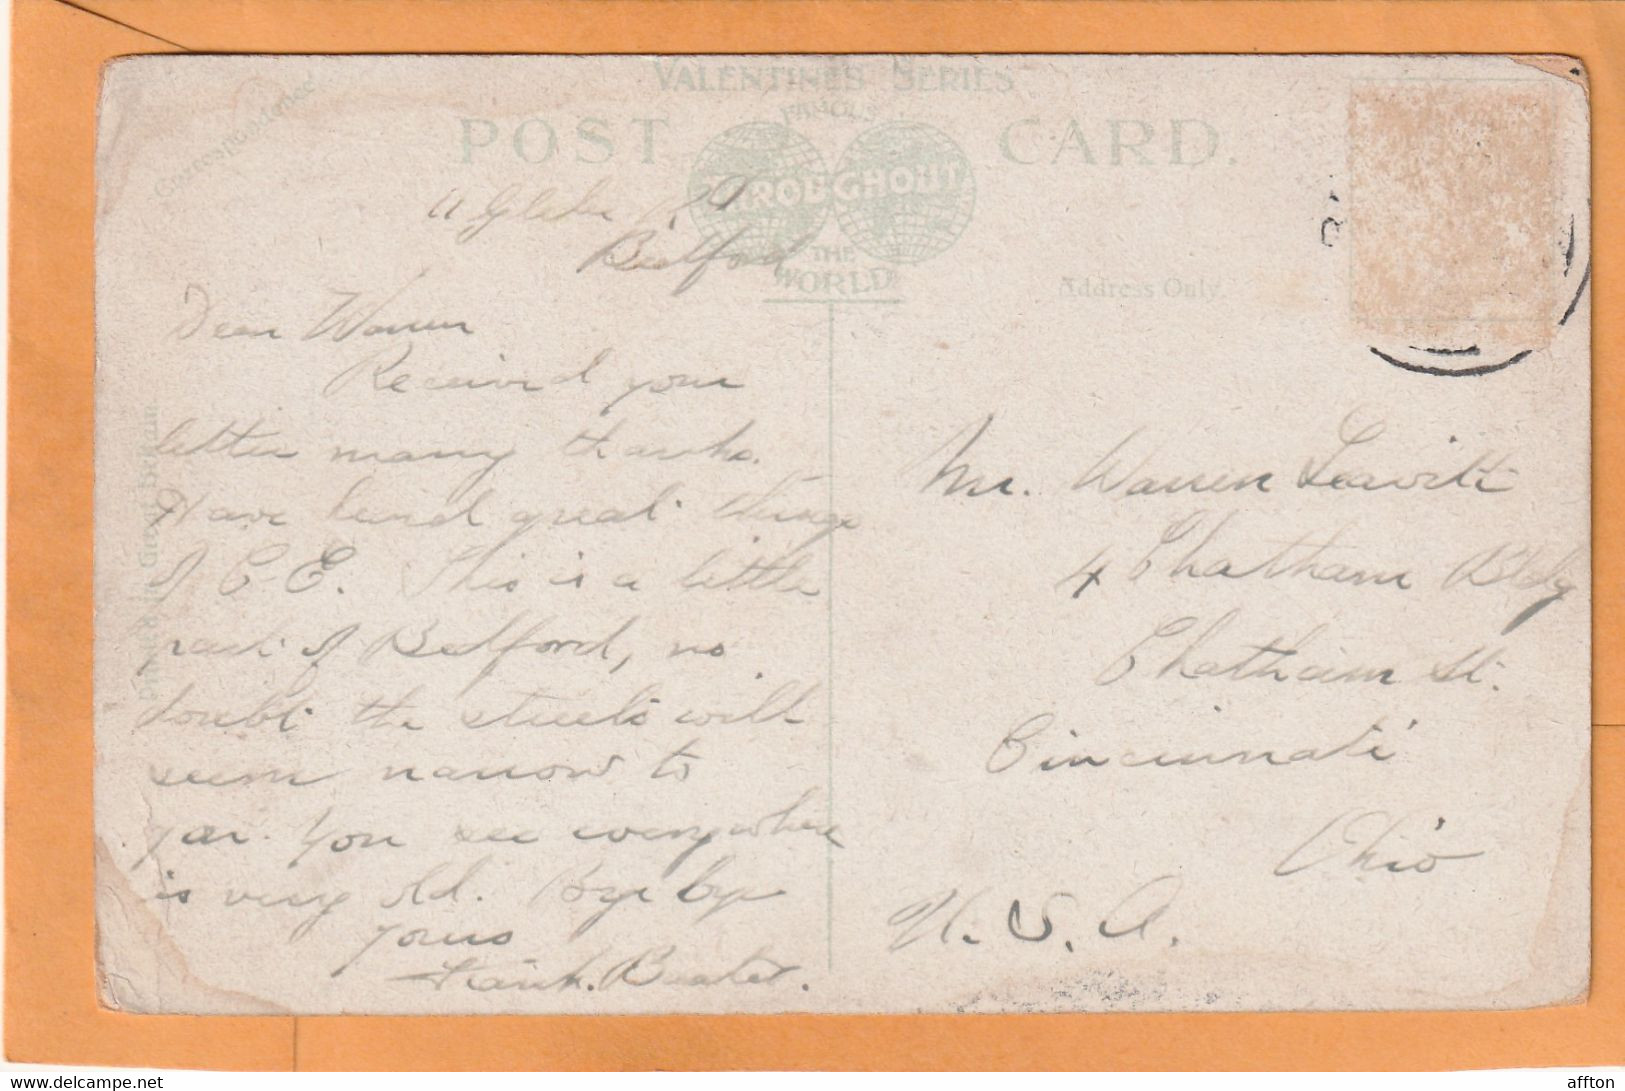 VALENTINE'S SERIES
FAMOUS
POST CARD.
THROUGHOUT
THE
WORLD
Correspondence
Address Only.
Printed in Great Britain
Bedford
Dear Warren
Received your
letter many thanks.
Have heard great things
of C.E. This is a little
of Bedford, no
doubt the streets will
seem narrow to
you. You see everywhere
is very old. Bye bye
yours
Frank.
Mr. Warren Leavitt
4 Chatham Bldg
Chatham St.
Cincinnati
Ohio
U.S.A.
affton
delcampe.net